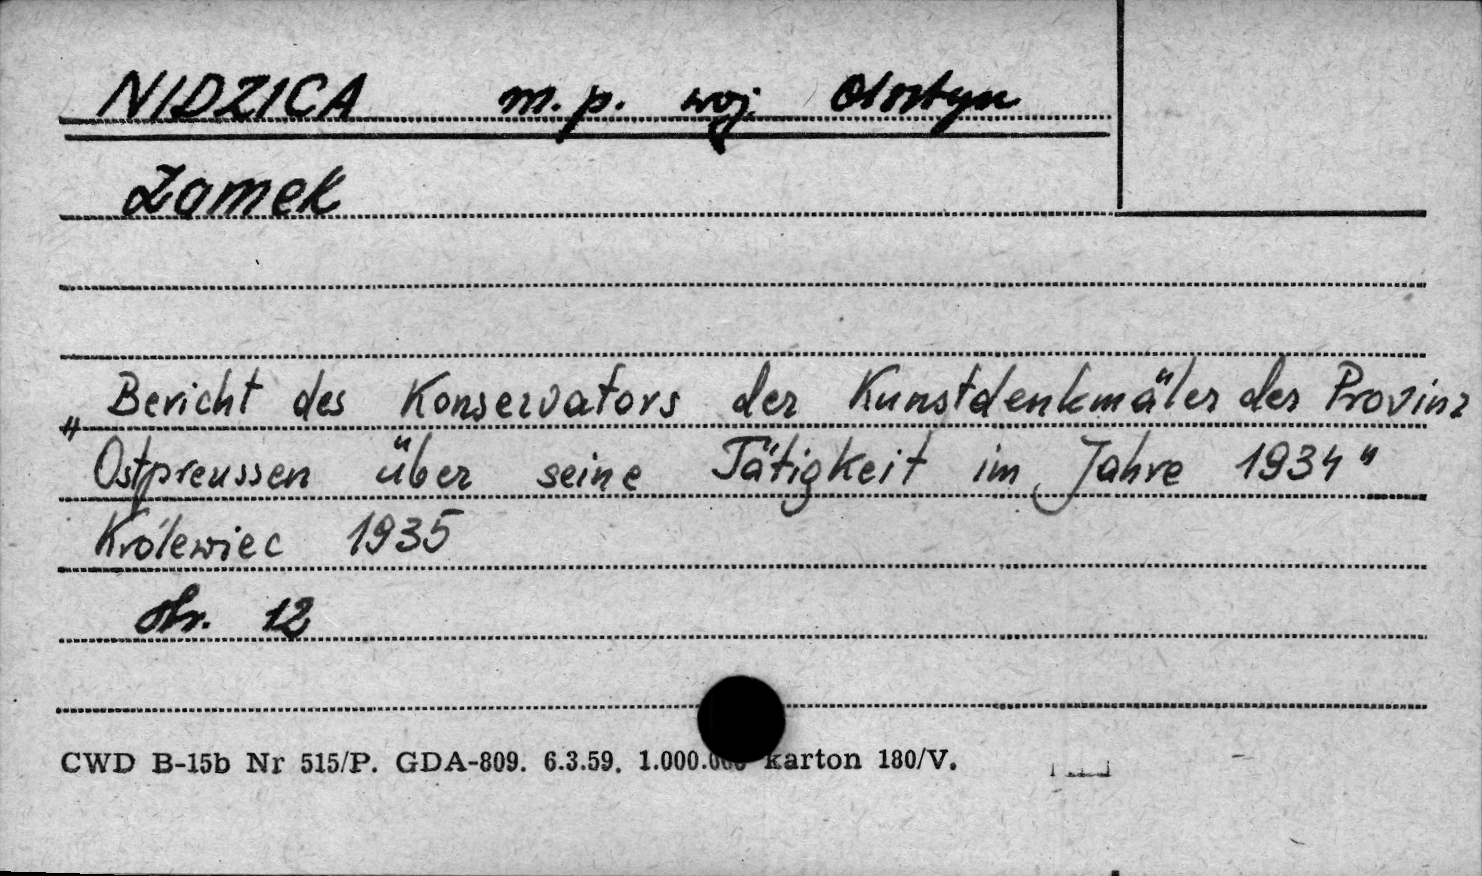 NIDZICA m. p. woj. Olsztyn
Zamek
„Bericht des Konservators der Kunstdenkmäler der Provinz
Ostpreussen über seine Tätigkeit im Jahre 1934"
Królewiec 1935
str. 12
CWD B-15b Nr 515/P. GDA-809. 6.3.59. karton 180/V.